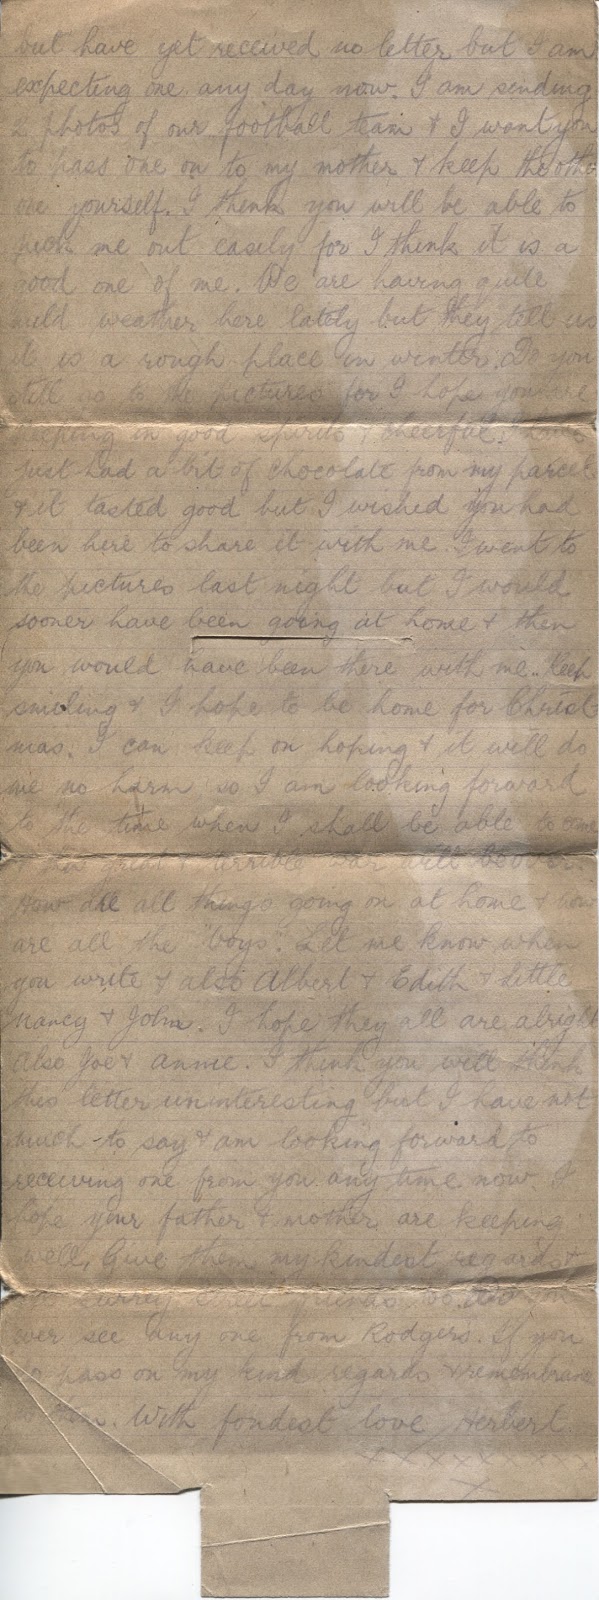 but have yet received no letter but I am
expecting one any day now. I am sending
2 photos of our football team & I want you
to pass one on to my mother & keep the othe
one yourself. I think you will be able to
pick me out easily for I think it is a
good one of me. We are having quite
mild weather here lately but they tell us
it is a rough place in winter. Do you
still go to the pictures for I hope you are
keeping in good spirits & cheerful. I have
just had a bit of chocolate from my parcel
& it tasted good but I wished you had
been here to share it with me. I went to
the pictures last night but I would
sooner have been going at home & then
you would have been there with me. Keep
smiling & I hope to be home for Christ
mas. I can keep on hoping & it will do
me no harm so I am looking forward
to the time when I shall be able to come
& this great & terrible war will be over.
How are all things going on at home & how
are all the "boys". Let me know when
you write & also Albert & Edith & Little
Nancy & John. I hope they all are alright
Also Joe & Annie. I think you will think
this letter uninteresting but I have not
much to say & am looking forward to
receiving one from you any time now. I
hope your father & mother are keeping
well. Give them my kindest regards &
Surrey Street friends too. Do you
ever see any one from Rodgers. If you
do pass on my kind regards & remembrance
to them. With fondest love Herbert
x x x x x x x x x
x